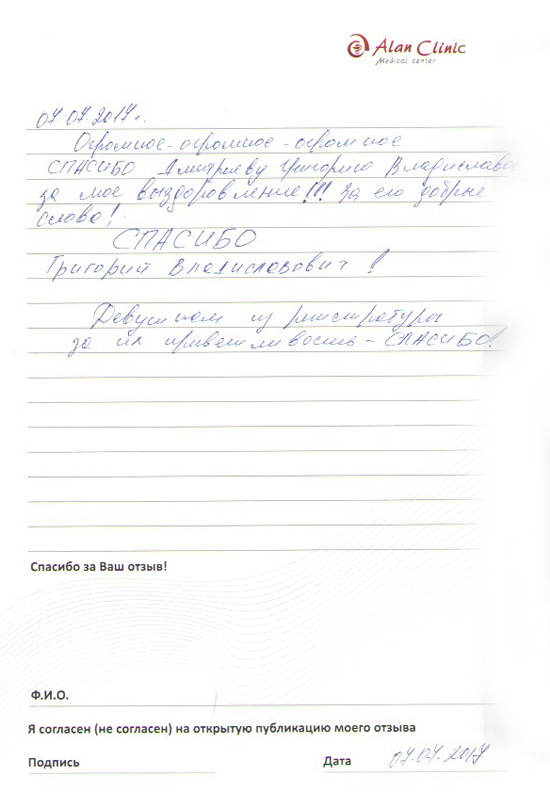 Alan Clinic
Medical center
07.07.2017г.
Огромное-огромное-огромное
СПАСИБО Дмитриеву Григорию Владиславов
за мое выздоровление!!! За его добрые
слова!
СПАСИБО
Григорий Владиславович!
Девушкам из регистратуры
за их приветливость - СПАСИБО!
Спасибо за Ваш отзыв!
Ф.И.О.
Я согласен (не согласен) на открытую публикацию моего отзыва
Подпись
Дата 07.07.2017